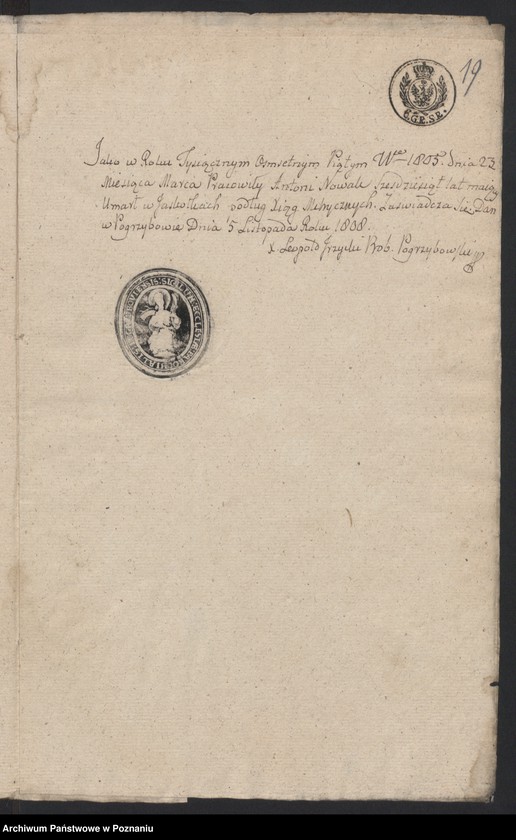 19
6.GR.SR.
Jako w Roku Tysiącznym Osmsetnym Piątym Wro 1805. dnia 23
Miesiąca Marca Pracowity Antoni Nowak Szesdziesiąt lat maiąc
Umarł w Jaskołkach podług Xiąg Metrycznych. Zaswiadcza się. Dan
w Pogrzybowie Dnia 5 Listopada Roku 1808.
X Leopold Prob. Pogrzybowski
SIGILLUM ECCLESIÆ
Archiwum Państwowe w Poznaniu